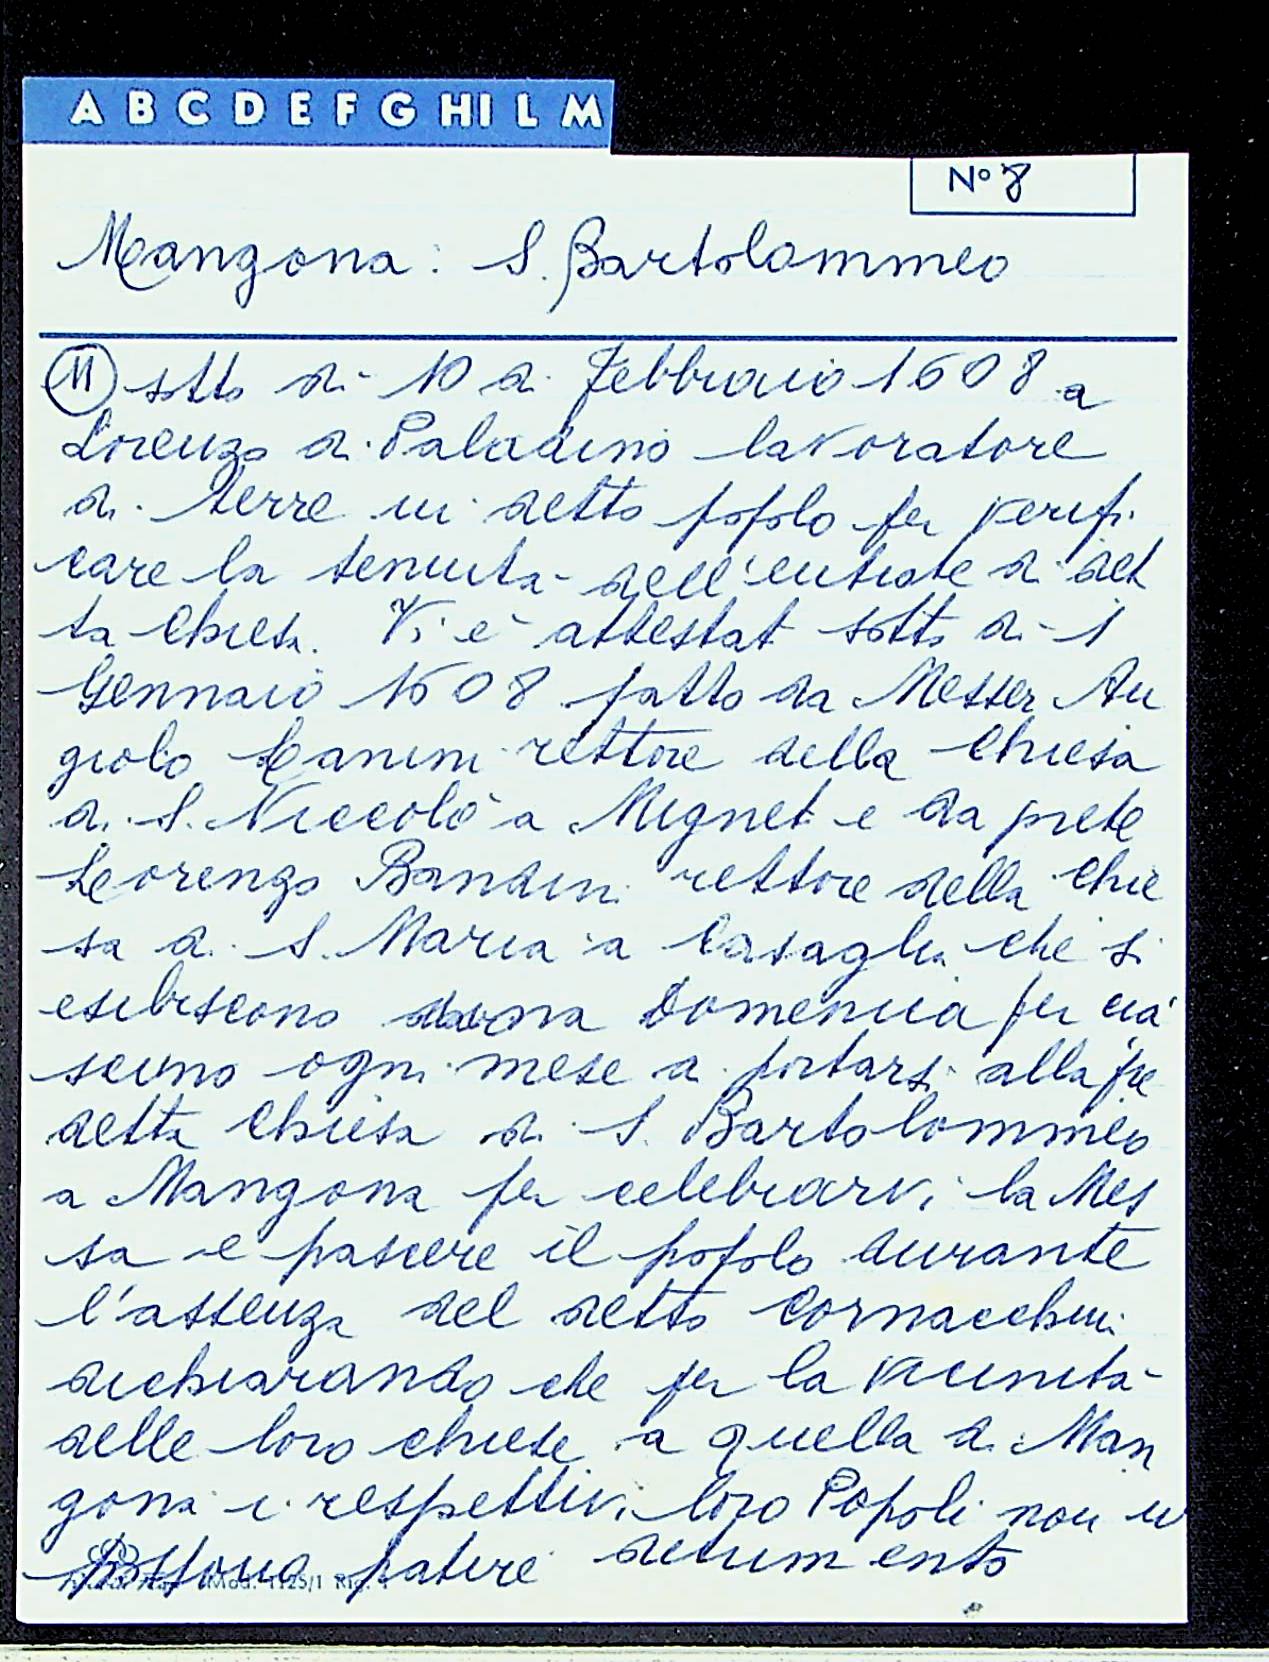 A B C D E F G HI L M
No 8
Mangona: S. Bartolommeo
11 sotto di 10 di Febbraio 1608 a
Lorenzo di Paladino lavoratore
di terre in detto popolo per verifi
care la tenuta dell'entrate di det
ta Chiesa. Vi è attestato sotto di 1
Gennaio 1608 fatto da Messer An
giolo Canini rettore della Chiesa
di S. Niccolò a Migneto e da prete
Lorenzo Bandini rettore della Chie
sa di S. Maria a Casaglia che si
esibiscono una Domenica per cia
scuno ogni mese a portarsi alla pre
detta Chiesa di S. Bartolommeo
a Mangona per celebrarvi la Mes
sa e pascere il popolo durante
l'assenza del detto Cornacchini
dichiarando che per la vicinità
delle loro chiese a quella di Man
gona i respettivi loro Popoli non vi
possono patire detrimento
Mod. 1125/1